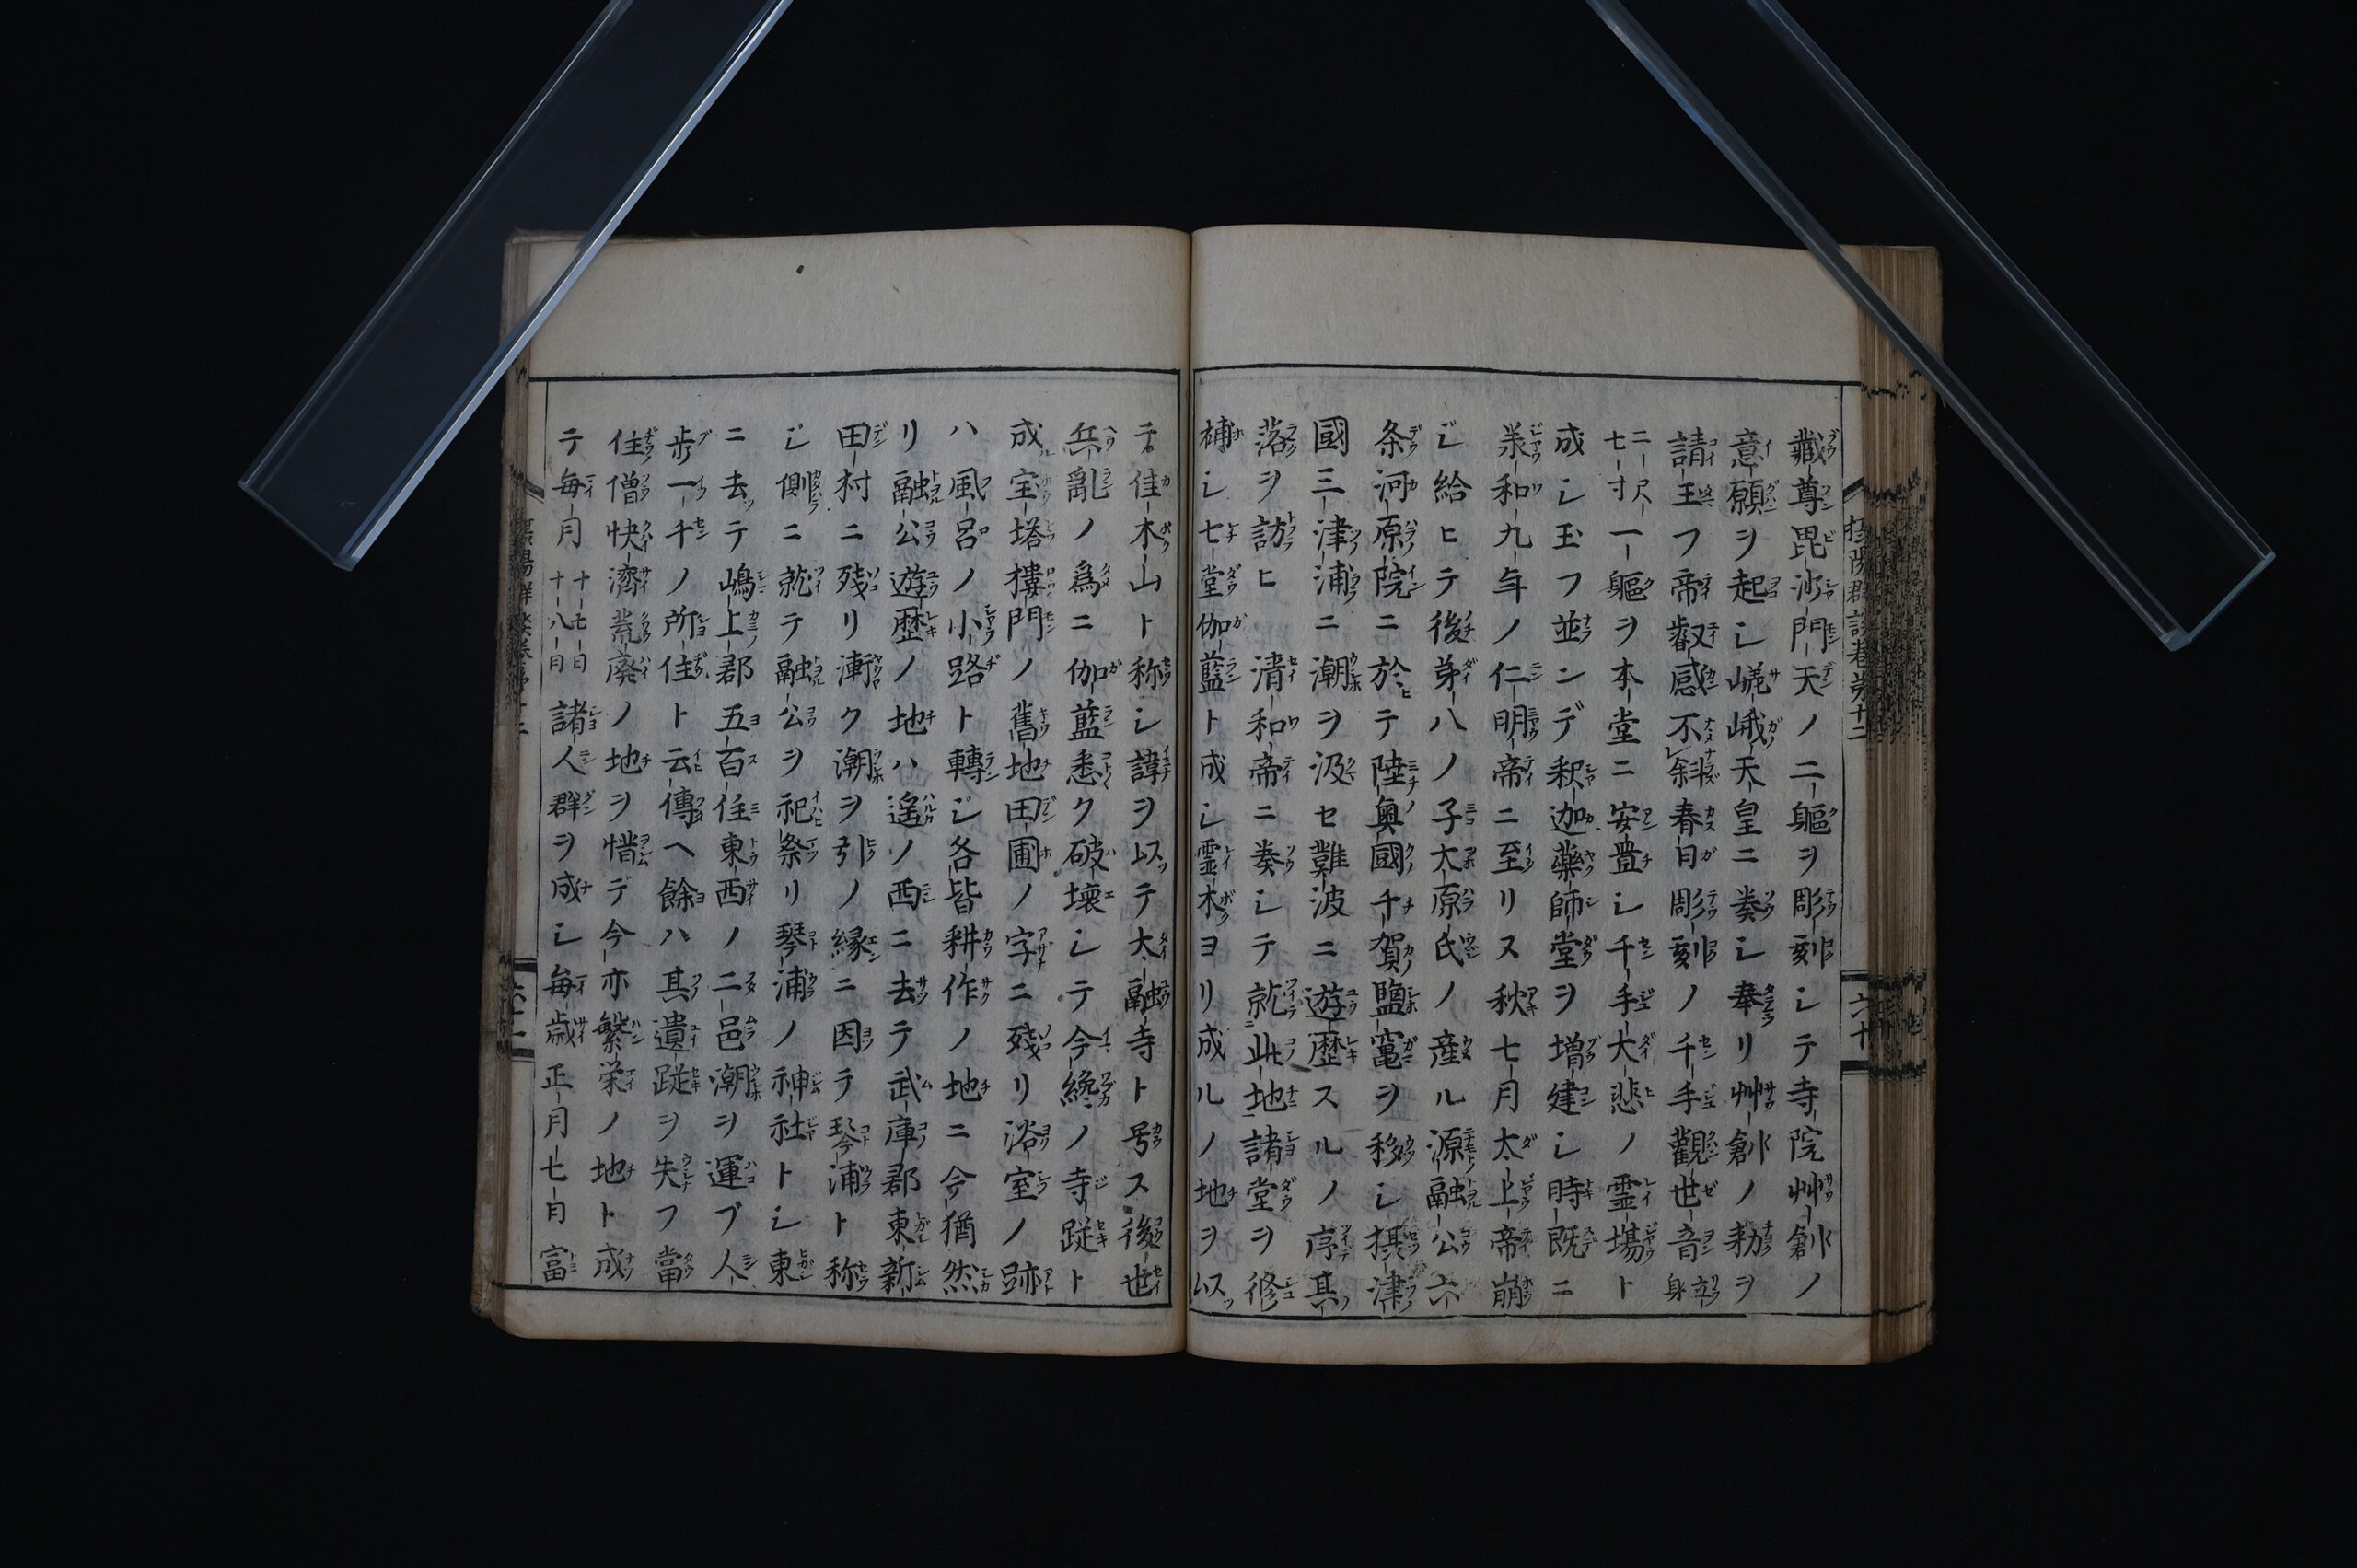 藏尊毘沙門天ノ二軀ヲ彫刻シテ寺院艸創ノ
意願ヲ起シ嵯峨天皇ニ奏シ奉リ艸創ノ勅ヲ
請玉フ帝叡感不斜春日彫刻ノ千手觀世音立身
二尺七寸一軀ヲ本堂ニ安置シ千手大悲ノ霊塲ト
成シ玉フ並ンデ釈迦藥師堂ヲ増建シ時既ニ
承和九年ノ仁明帝ニ至リヌ秋七月太上帝崩
ジ給ヒテ後弟八ノ子大原氏ノ産ル源融公六
条河原院ニ於テ陸奥國千賀鹽竃ヲ移シ摂津
國三津浦ニ潮ヲ汲セ難波ニ遊歴スルノ序其
落ヲ訪ヒ清和帝ニ奏シテ就此地諸堂ヲ修
補シ七堂伽藍ト成シ霊木ヨリ成ルノ地ヲ以
テ佳木山ト称シ諱ヲ以テ太融寺ト号ス後世
兵亂ノ為ニ伽藍悉ク破壊シテ今纔ノ寺蹤ト
成宝塔摟門ノ舊地田圃ノ字ニ残リ浴室ノ跡
ハ風呂ノ小路ト轉ジ各皆耕作ノ地ニ今猶然
リ融公遊歴ノ地ハ遥ノ西ニ去テ武庫郡東新
田村ニ殘リ漸ク潮ヲ引ノ縁ニ因テ琴浦ト称
ジ側ニ就テ融公ヲ祀祭リ琴浦ノ神社トシ東
ニ去テ嶋上郡五百住東西ノ二邑潮ヲ運ブ人
歩一千ノ所住ト云傳ヘ餘ハ其遺蹤ヲ失フ當
住僧快濟荒廃ノ地ヲ惜デ今亦繁栄ノ地ト成
テ毎月十七日十八日諸人群ヲ成シ毎歳正月七日富
摂陽群談巻第十二
六十